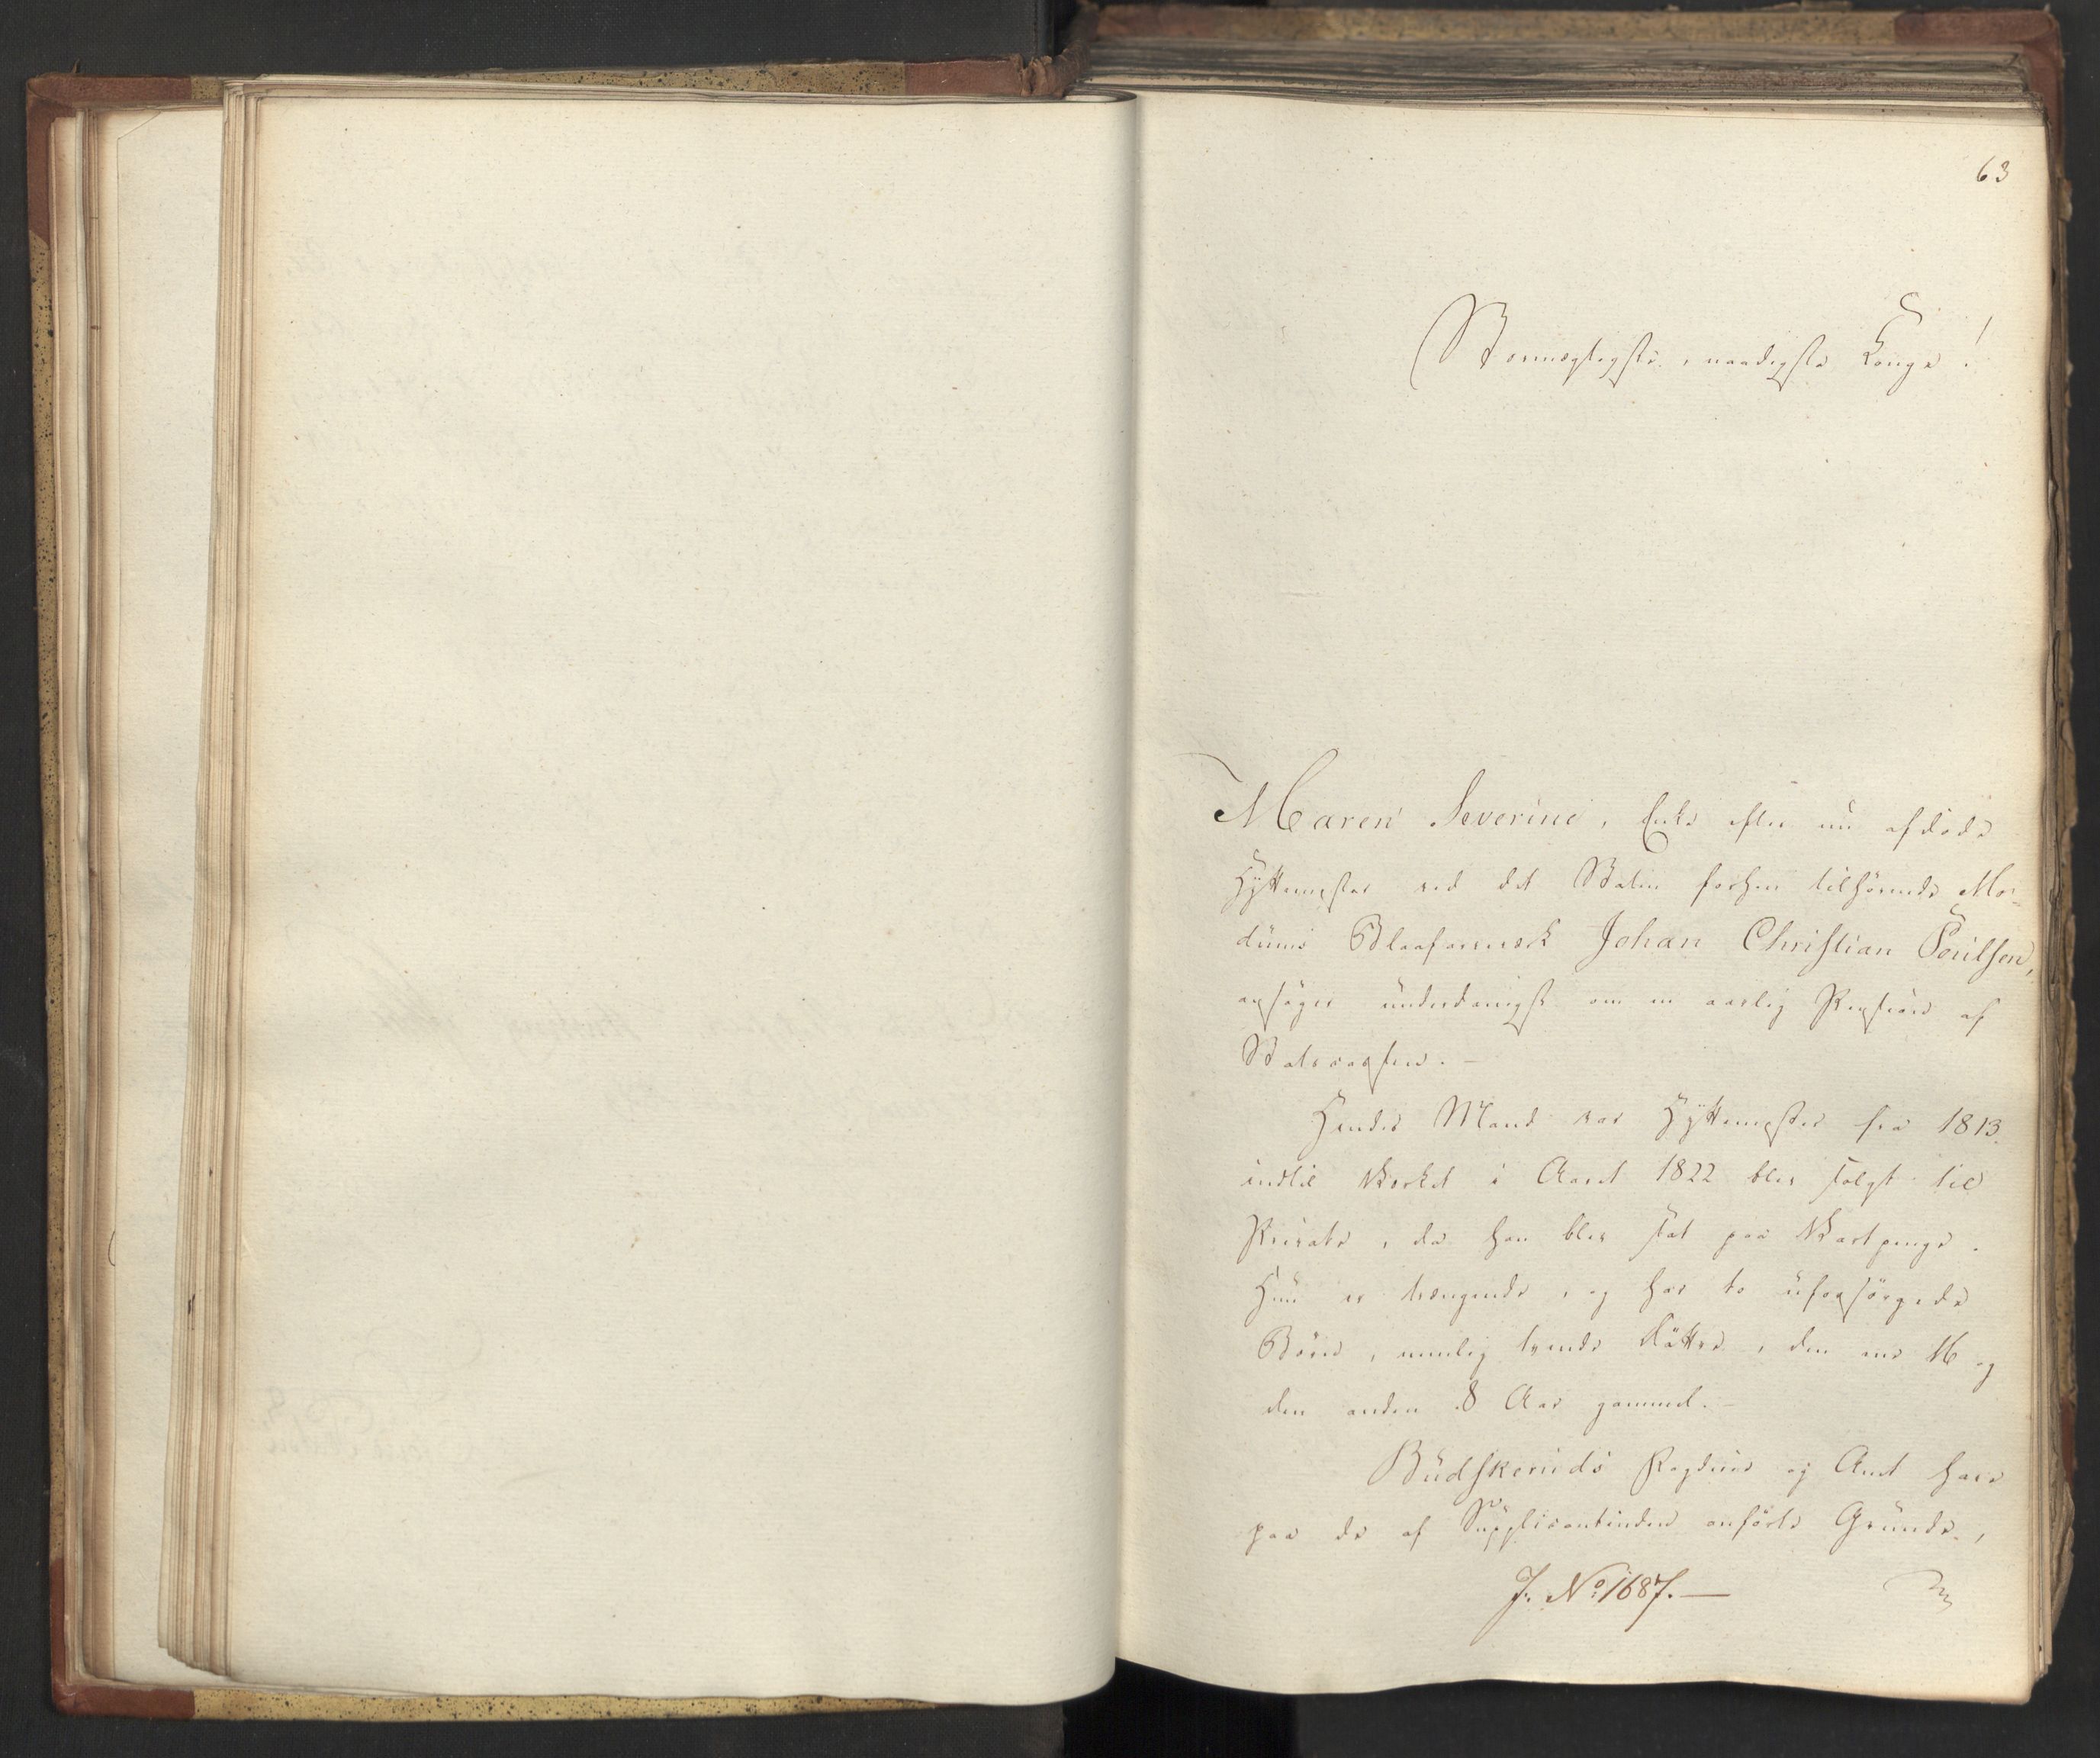 63
Stormægtigste, naadigste Konge!
Maren Severine, Enke efter nu afdøde
Hyttemester ved det Staten forhen tilhørende Mo-
dums Blaafarveværk Johan Christian Poulsen,
ansøger underdanigst om en aarlig Pension af
Statscassen. —
Hendes Mand var Hyttemester fra 1813
indtil Værket i Aaret 1822 blev solgt til
Private, da han blev sat paa Vartpenge.
Hun er trængende, og har to uforsørgede
Børn, nemlig tvende Døttre, den ene 16 og
den anden 8 Aar gammel. —
Budskeruds Fogderie og Amt have
paa de af Supplicantinden anførte Grunde,
J. No 1687. —